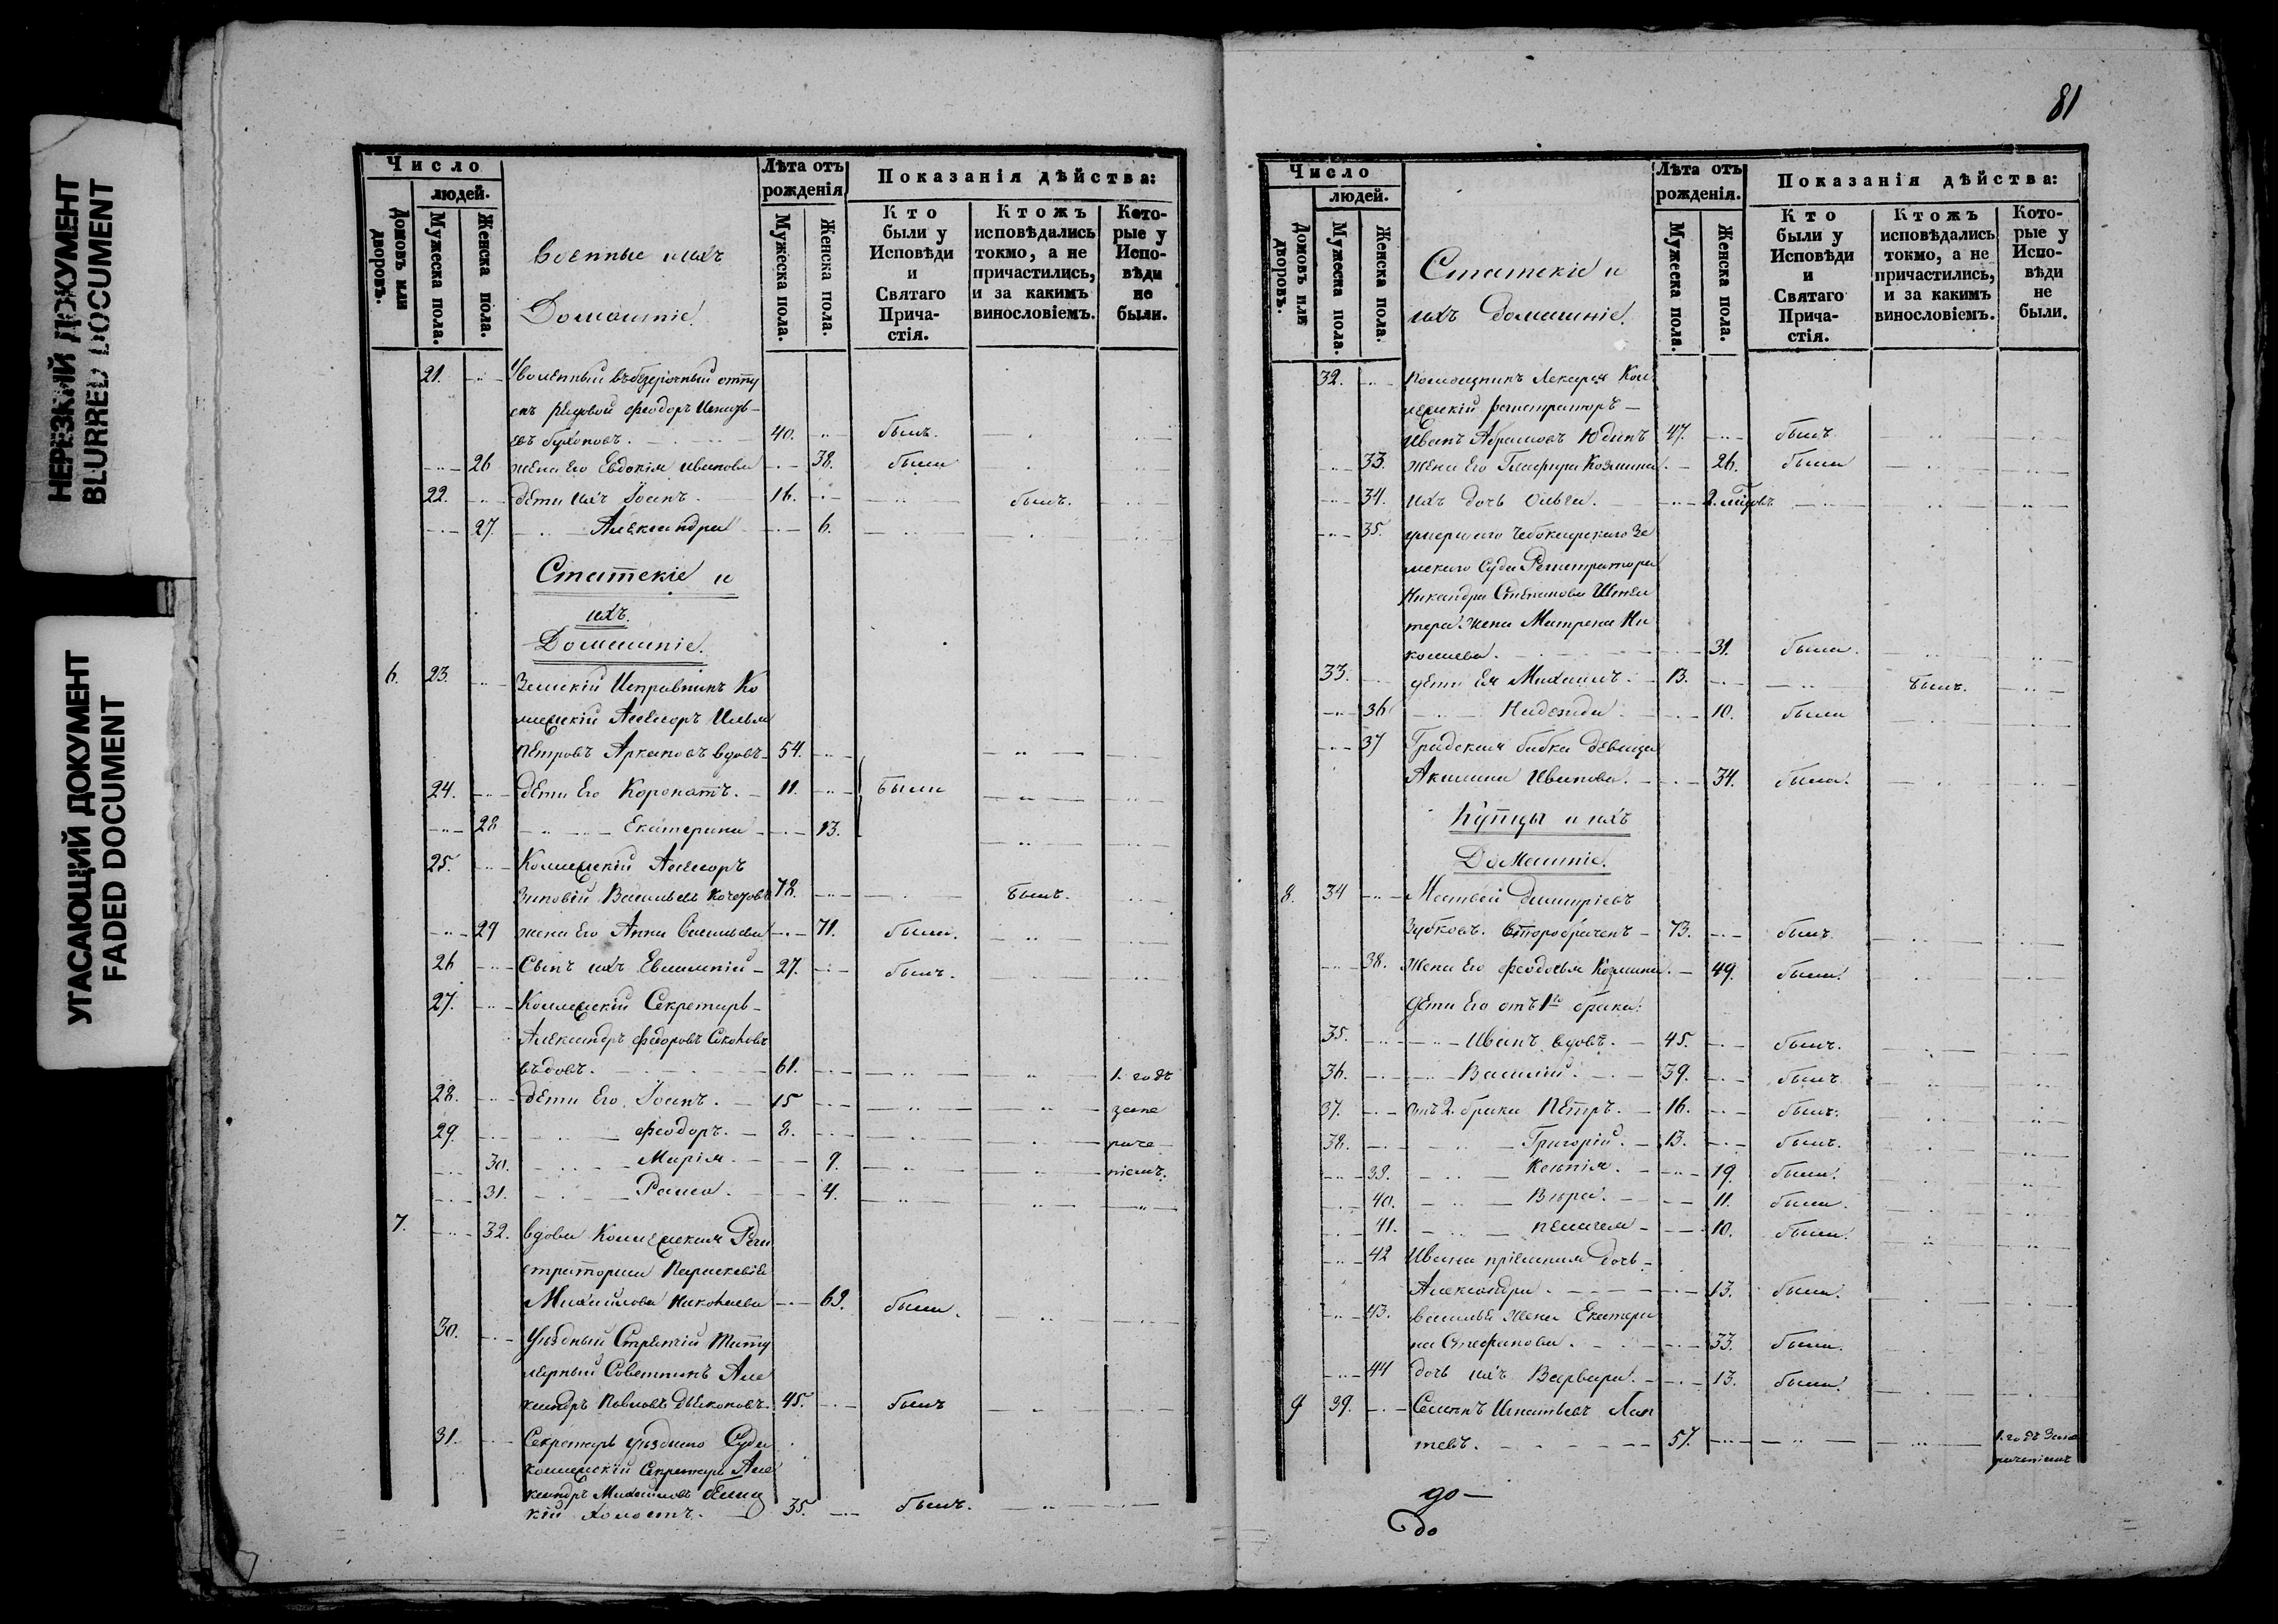 НЕРЕЗКИЙ ДОКУМЕНТ
BLURRED DOCUMENT
УГАСАЮЩИЙ ДОКУМЕНТ
FADED DOCUMENT
Число
людей.
Домовъ или дворовъ.
Мужеска пола.
Женска пола.
Военные и ихъ
Домашніе.
Лѣта отъ рожденія
Мужеска пола.
Женска пола.
Показанія дѣйства:
Кто были у Исповѣди и Святаго Прича-стія.
Ктожъ исповѣдались токмо, а не причастились, и за какимъ винословіемъ.
Кото-рые у Испо-вѣди не были.
21. Уволенный въ безсрочный отпу
скъ рядовой Феодоръ
40. былъ.
26 жена его Евдокія Иванова 38. была
22. дѣти ихъ Іоанъ 16. былъ.
27. Александра 6.
Статскіе и
ихъ
Домашніе.
6. 23. Земскій Исправникъ Ко
лежскій Асесоръ Илья
Петровъ вдовъ 54.
24. дѣти его 11. были
28 Екатерина 13.
25. Колежскій Асесоръ
Зиновій Васильевъ 78. былъ.
29 жена его Анна Васильева 71. была.
26 Сынъ ихъ Евлампій 27. былъ.
27. Колежскій Секретарь
Александръ Федоровъ Соколовъ
вдовъ. 61. 1. годъ
28. дѣти его. Іоанъ. 15 запе
29. Феодоръ. 8. рате
30. Марія 9. ніемъ.
31. Раиса. 4.
7. 32. вдова Колежская Реги
страторша Параскевія
Михайлова Николаева 69. была.
30. Уѣздный Стряпчій Титу
лярный Советникъ Але
ксандръ Павловъ Дьяконовъ. 45. былъ
31. Секретарь уѣзднаго Суда
колежскій Секретарь Але
ксандръ Михайловъ
кій холостъ. 35. былъ.
81
Число
людей.
Домовъ или дворовъ.
Мужеска пола.
Женска пола.
Статскіе и
ихъ домашніе.
Лѣта отъ рожденія.
Мужеска пола.
Женска пола.
Показанія дѣйства:
Кто были у Исповѣди и Святаго Прича-стія.
Ктожъ исповѣдались токмо, а не причастились, и за какимъ винословіемъ.
Кото-рые у Испо-вѣди не были.
32. помощникъ Лекаря Кол
лежскій регистраторъ
Иванъ Абрамовъ Юдинъ 47. былъ
33. жена его Глафира Козмина 26. была
34. ихъ дочь Ольга. 2.
35. умершаго Чебоксарскаго Зе
мскаго Суда Регистратора
Никандра Степанова
жена Матрена Ни
колаева. 31. была.
33. дѣти ея Михаилъ. 13. былъ.
36 Надежда 10. была
37 Градская бабка девица
Акилина Иванова. 34. была.
Купцы и ихъ
Домашніе.
8. 34 Матвей Дмитріевъ
Зубковъ. второбраченъ 73. былъ.
38. Жена его Феодосья Козмина. 49. была.
дѣти его отъ 1го брака:
35. Иванъ вдовъ. 45. былъ.
36. Василій. 39. былъ
37. отъ 2. брака Петръ. 16. былъ.
38. Григорій. 13. былъ.
39. Ксенія. 19. была.
40. Вѣра. 11. была.
41. Пелагея 10. была.
42 Ивана пріемная дочь
Александра. 13. была.
43. Василья жена Екатери
на Стефанова. 33. была.
44 дочь ихъ Варвара. 13. была.
9 39. Семенъ Игнатьевъ Лап
тевъ. 57. 1. годъ запе
ратеніемъ
до